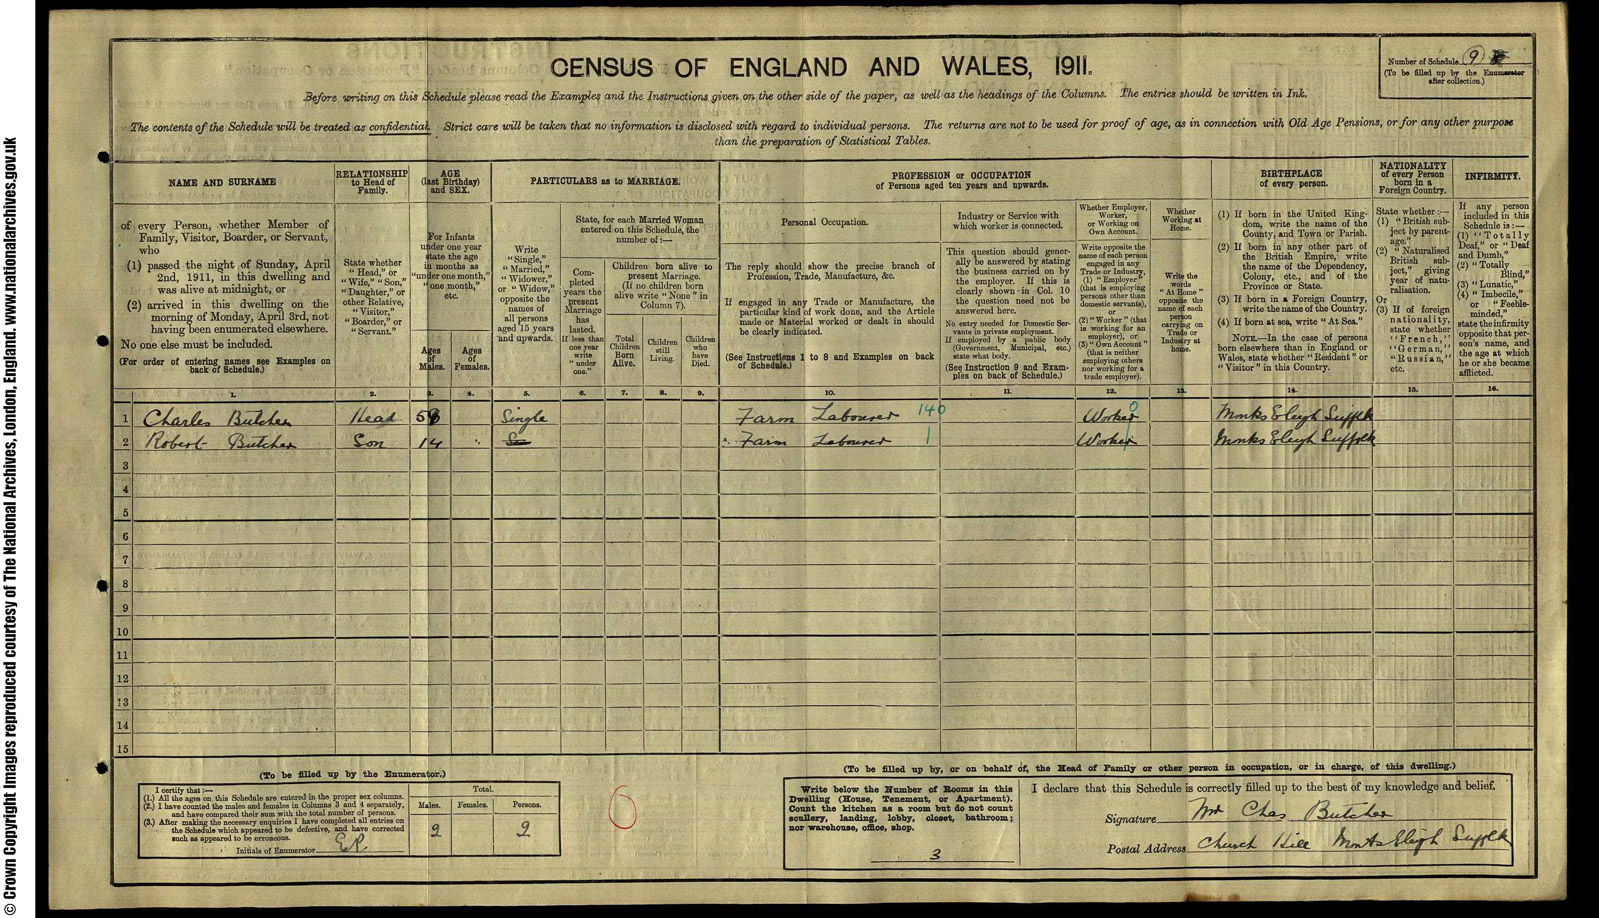 © Crown Copyright Images reproduced courtesy of The National Archives, London, England. www.nationalarchives.gov.uk
CENSUS OF ENGLAND AND WALES, 1911.
Number of Schedule 9
(To be filled up by the Enumerator
after collection.)
Before writing on this Schedule please read the Examples and the Instructions given on the other side of the paper, as well as the headings of the Columns. The entries should be written in Ink.
The contents of the Schedule will be treated as confidential. Strict care will be taken that no information is disclosed with regard to individual persons. The returns are not to be used for proof of age, as in connection with Old Age Pensions, or for any other purpose
than the preparation of Statistical Tables.
NAME AND SURNAME
of every Person, whether Member of
Family, Visitor, Boarder, or Servant,
who
(1) passed the night of Sunday, April
2nd, 1911, in this dwelling and
was alive at midnight, or
(2) arrived in this dwelling on the
morning of Monday, April 3rd, not
having been enumerated elsewhere.
No one else must be included.
(For order of entering names see Examples on
back of Schedule.)
RELATIONSHIP
to Head of
Family.
State whether
"Head," or
"Wife," "Son,"
"Daughter," or
other Relative,
"Visitor,"
"Boarder," or
"Servant."
AGE
(last Birthday)
and SEX.
For Infants
under one year
state the age
in months as
"under one month,"
"one month,"
etc.
Ages
of
Males.
Ages
of
Females.
PARTICULARS as to MARRIAGE.
Write
"Single,"
"Married,"
"Widower,"
or "Widow,"
opposite the
names of
all persons
aged 15 years
and upwards.
State, for each Married Woman
entered on this Schedule, the
number of:—
Completed
years the
present
Marriage
has
lasted.
If less than
one year
write
"under
one."
Children born alive to
present Marriage.
(If no children born
alive write "None" in
Column 7).
Total
Children
Born
Alive.
Children
still
Living.
Children
who
have
Died.
PROFESSION or OCCUPATION
of Persons aged ten years and upwards.
Personal Occupation.
The reply should show the precise branch of
Profession, Trade, Manufacture, &c.
If engaged in any Trade or Manufacture, the
particular kind of work done, and the Article
made or Material worked or dealt in should
be clearly indicated.
(See Instructions 1 to 8 and Examples on back
of Schedule.)
Industry or Service with
which worker is connected.
This question should gener-
ally be answered by stating
the business carried on by
the employer. If this is
clearly shown in Col. 10
the question need not be
answered here.
No entry needed for Domestic Ser-
vants in private employment.
If employed by a public body
(Government, Municipal, etc.)
state what body.
(See Instruction 9 and Exam-
ples on back of Schedule.)
Whether Employer,
Worker,
or Working on
Own Account.
Write opposite the
name of each person
engaged in any
Trade or Industry,
(1) "Employer"
(that is employing
persons other than
domestic servants),
or
(2) "Worker" (that
is working for an
employer), or
(3) "Own Account"
(that is neither
employing others
nor working for a
trade employer).
Whether
Working at
Home.
Write the
words
"At Home"
opposite the
name of each
person
carrying on
Trade or
Industry at
home.
BIRTHPLACE
of every person.
(1) If born in the United King-
dom, write the name of the
County, and Town or Parish.
(2) If born in any other part of
the British Empire, write
the name of the Dependency,
Colony, etc., and of the
Province or State.
(3) If born in a Foreign Country,
write the name of the Country.
(4) If born at sea, write "At Sea."
NOTE.—In the case of persons
born elsewhere than in England or
Wales, state whether "Resident" or
"Visitor" in this Country.
NATIONALITY
of every Person
born in a
Foreign Country.
State whether:—
(1) "British sub-
ject by parent-
age,"
(2) "Naturalised
British sub-
ject," giving
year of natu-
ralisation.
Or
(3) If of foreign
nationality,
state whether
"French,"
"German,"
"Russian,"
etc.
INFIRMITY.
If any person
included in this
Schedule is:—
(1) "Totally
Deaf," or "Deaf
and Dumb,"
(2) "Totally
Blind,"
(3) "Lunatic,"
(4) "Imbecile,"
or "Feeble-
minded,"
state the infirmity
opposite that per-
son's name, and
the age at which
he or she became
afflicted.
1. 2. 3. 4. 5. 6. 7. 8. 9. 10. 11. 12. 13. 14. 15. 16.
1 Charles Butcher Head 58 Single Farm Labourer 140 Worker 0 Monks Eleigh Suffolk
2 Robert Butcher Son 14 Farm Labourer 1 Worker Monks Eleigh Suffolk
3
4
5
6
7
8
9
10
11
12
13
14
15
(To be filled up by the Enumerator.)
I certify that:—
(1.) All the ages on this Schedule are entered in the proper sex columns.
(2.) I have counted the males and females in Columns 3 and 4 separately,
and have compared their sum with the total number of persons.
(3.) After making the necessary enquiries I have completed all entries on
the Schedule which appeared to be defective, and have corrected
such as appeared to be erroneous.
Initials of Enumerator ER
Total.
Males. Females. Persons.
2 2
(To be filled up by, or on behalf of, the Head of Family or other person in occupation, or in charge, of this dwelling.)
Write below the Number of Rooms in this
Dwelling (House, Tenement, or Apartment).
Count the kitchen as a room but do not count
scullery, landing, lobby, closet, bathroom;
nor warehouse, office, shop.
3
I declare that this Schedule is correctly filled up to the best of my knowledge and belief.
Signature Mr Chas Butcher
Postal Address Church Hill Monks Eleigh Suffolk